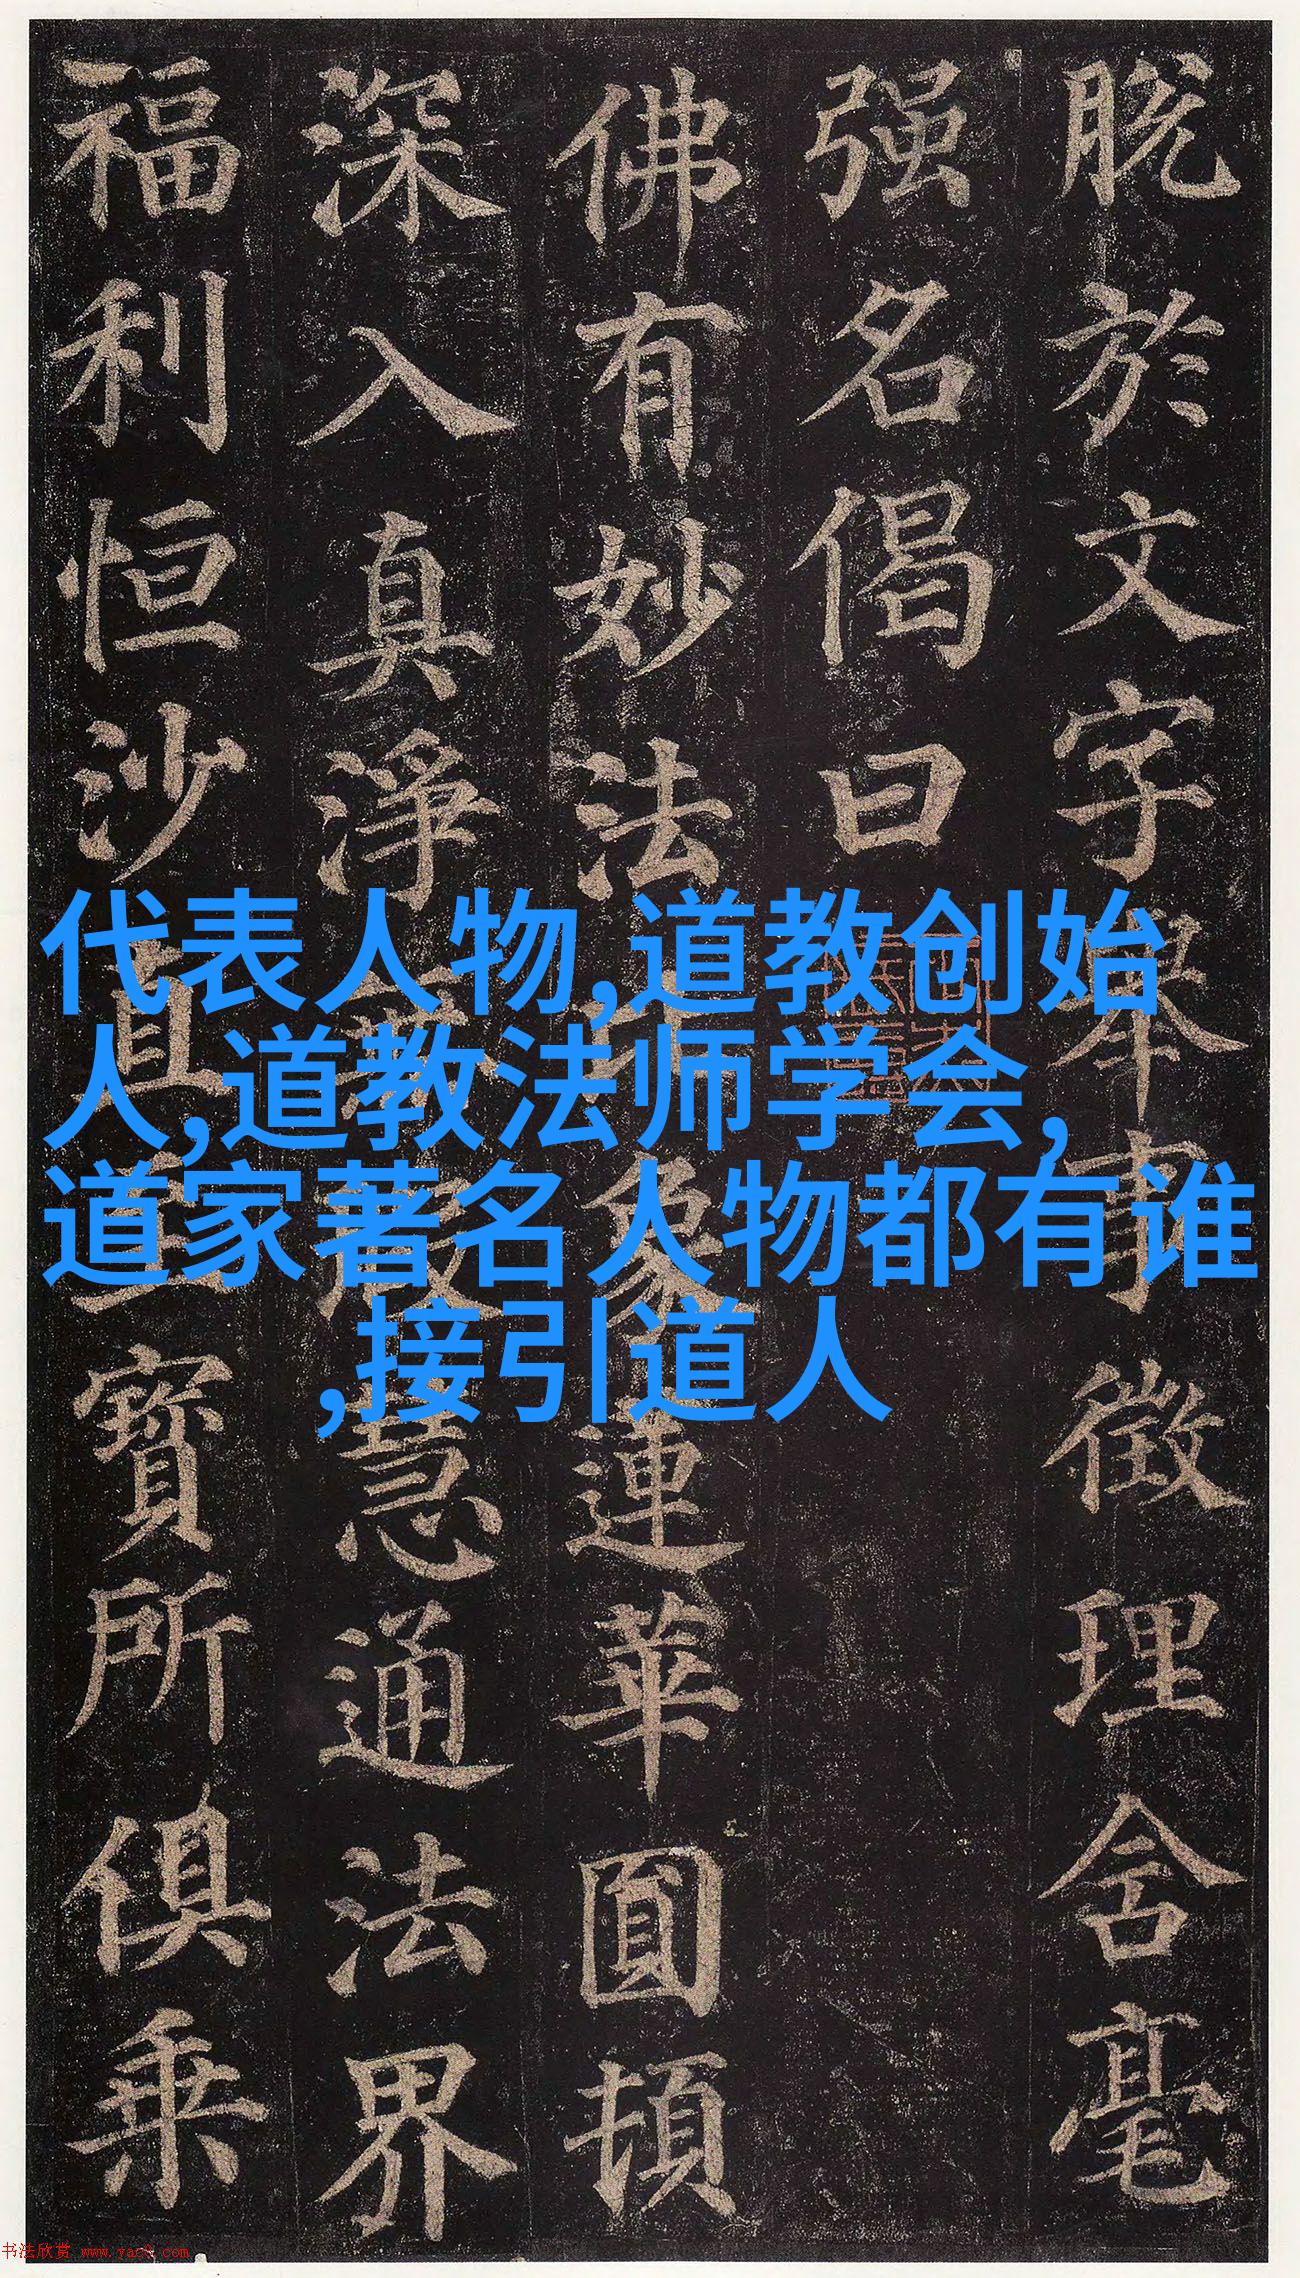 脱於文字舉事徵理含毫
强名偈曰
佛有妙法比象蓮華圓頓
深入真淨無瑕慧通法界
福利恒沙直至寶所俱乘
代表人物,道教创始
人,道教法师学会,
道家著名人物都有谁
,接引道人
书法欣赏 www.yac8.com